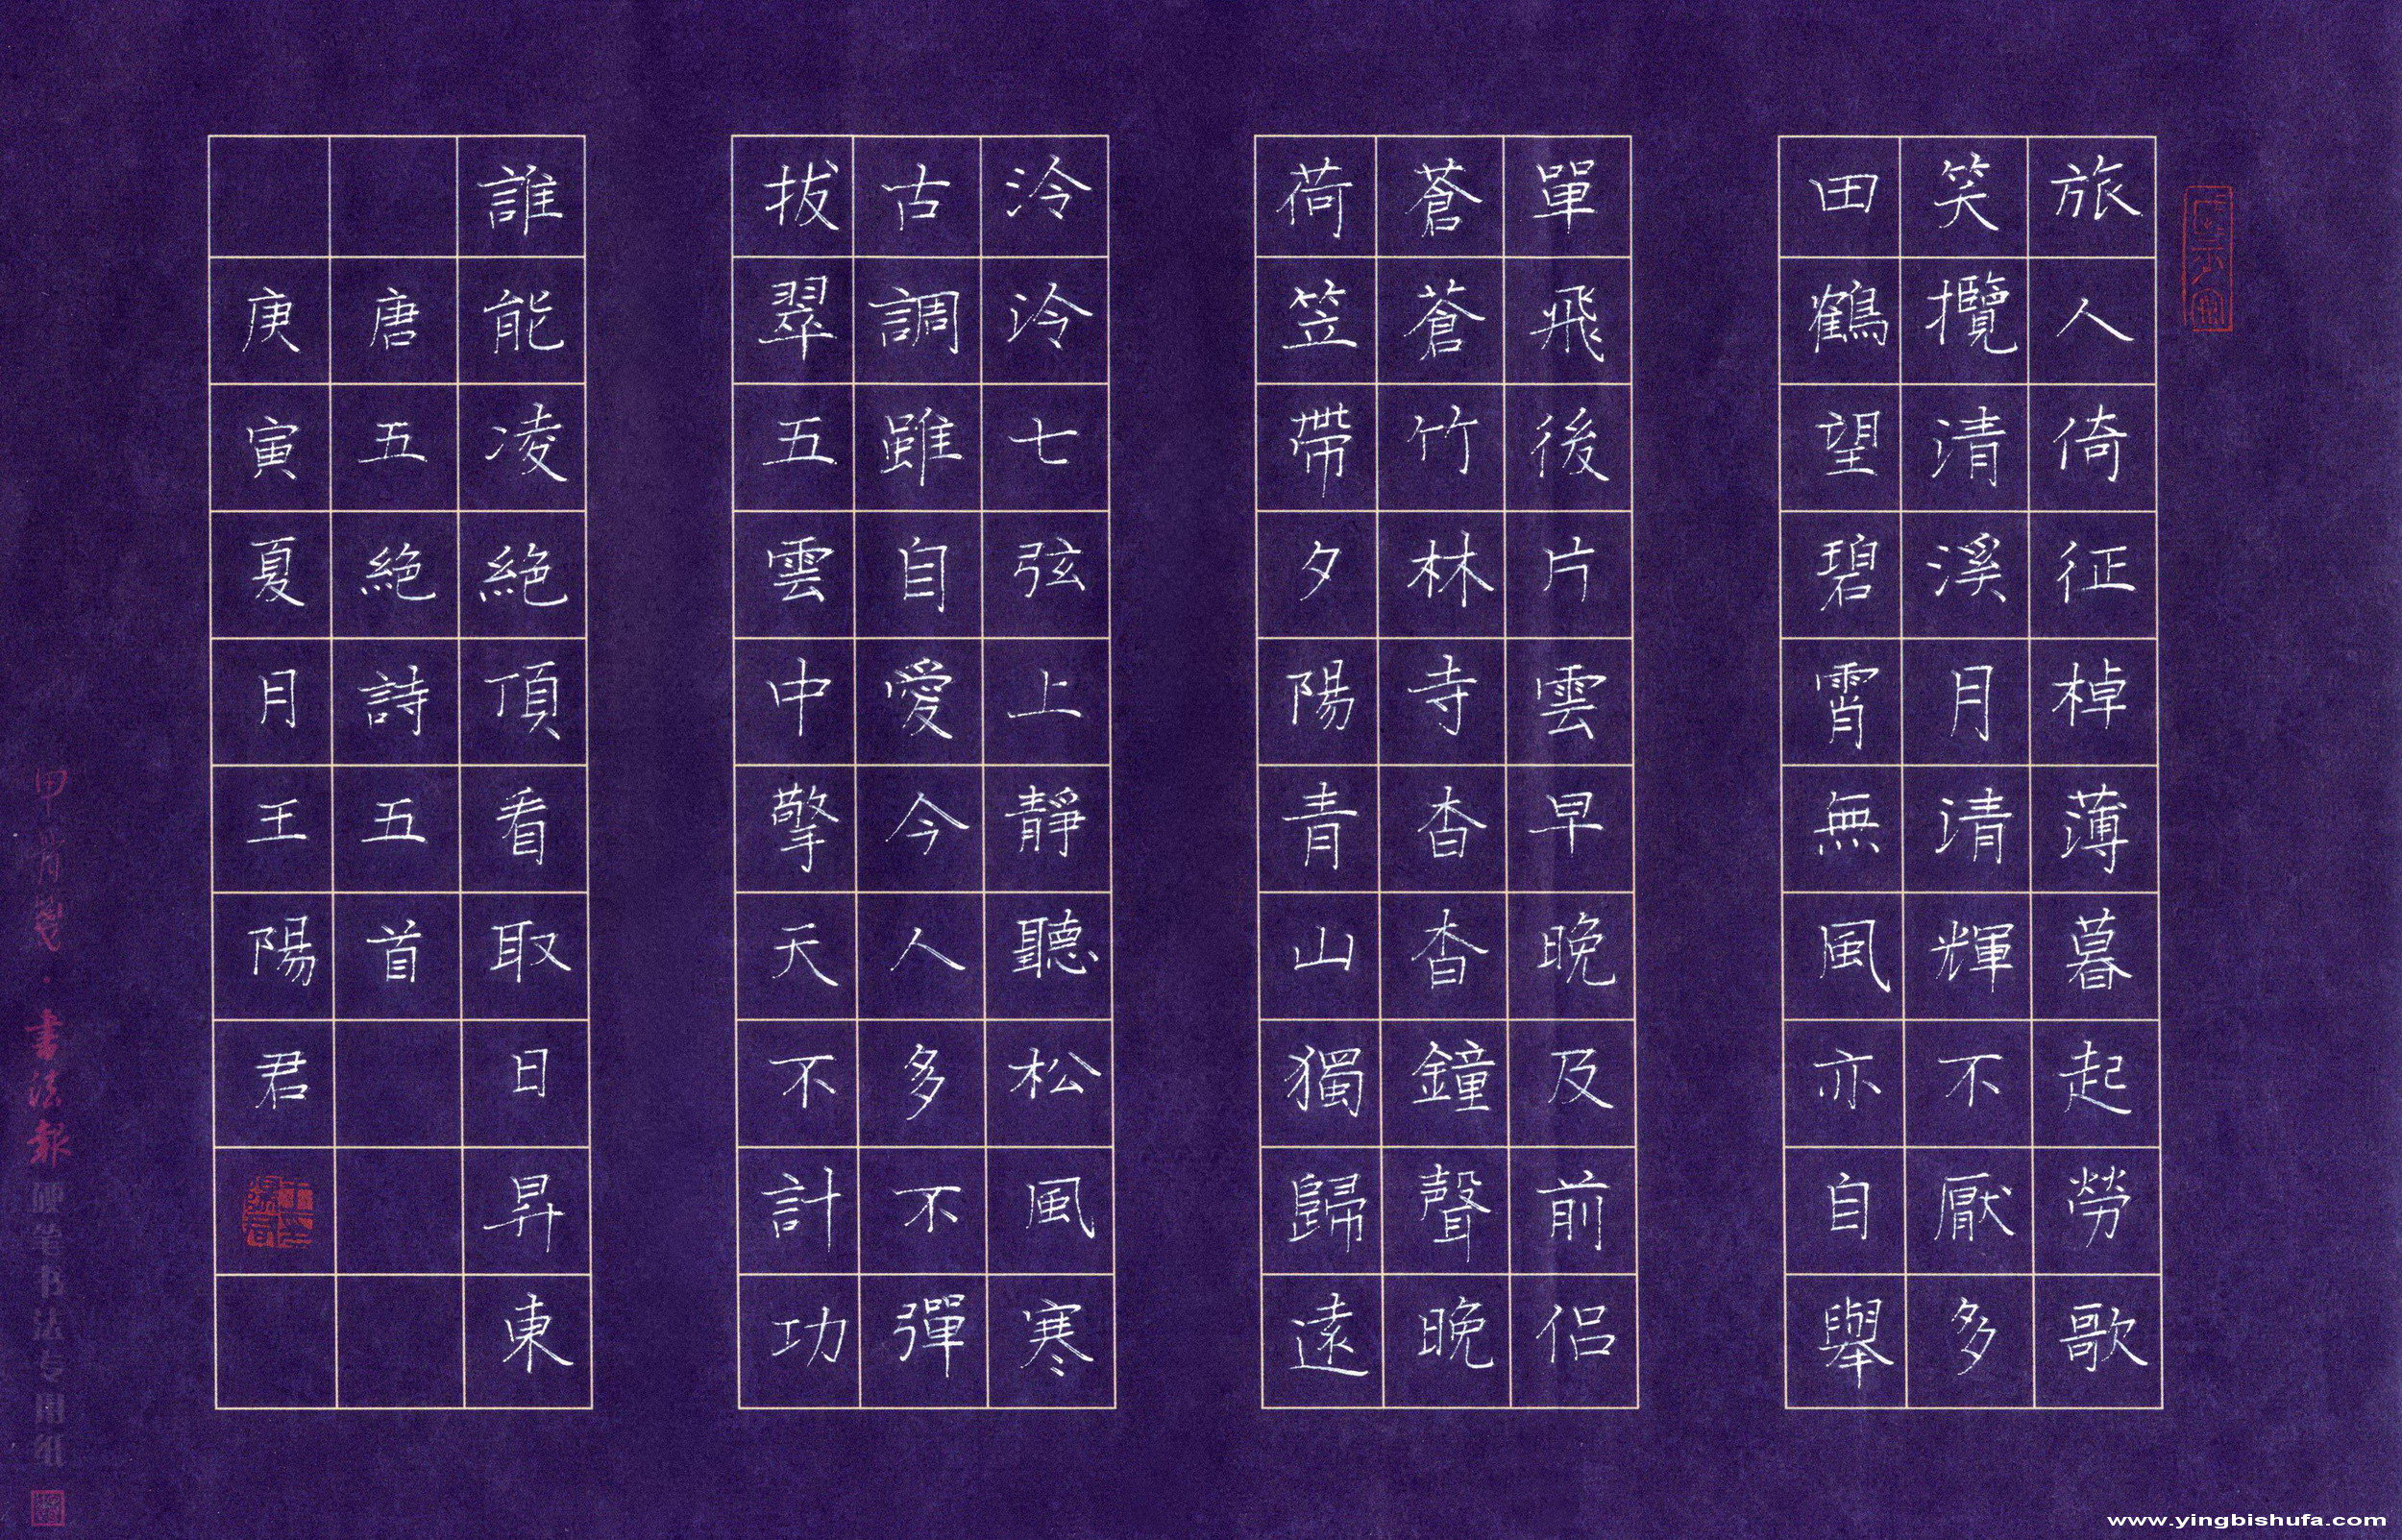 旅人倚征棹薄暮起勞歌
笑攬清溪月清輝不厭多
田鶴望碧霄無風亦自舉
單飛後片雲早晚及前侶
蒼蒼竹林寺杳杳鐘聲晚
荷笠帶夕陽青山獨歸遠
泠泠七弦上靜聽松風寒
古調雖自愛今人多不彈
拔翠五雲中擎天不計功
誰能凌絕頂看取日昇東
唐五絕詩五首
庚寅夏月王陽君
甲骨箋·書法報硬笔书法专用纸
www.yingbishufa.com